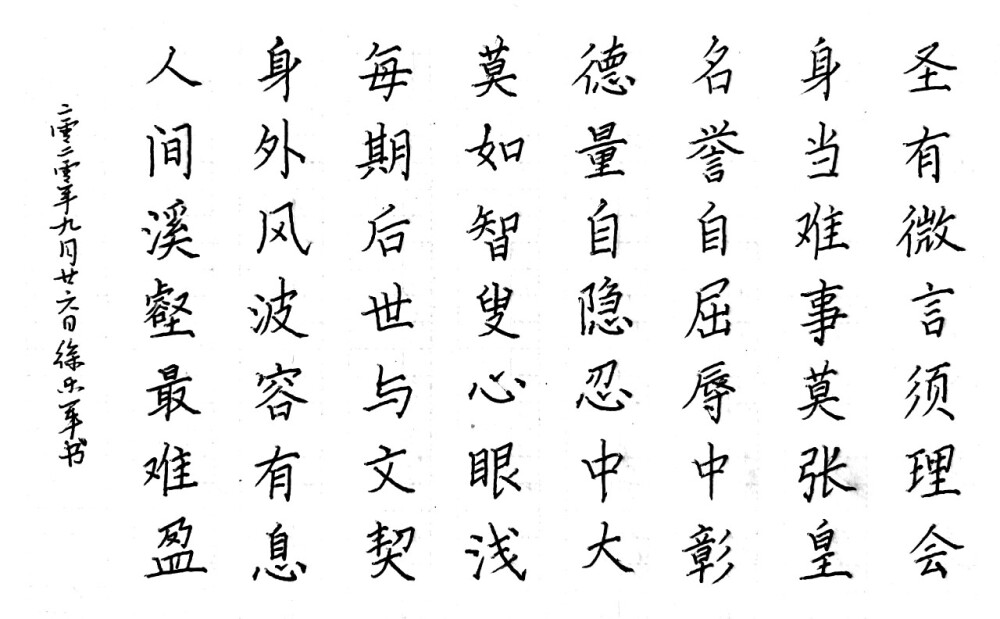 圣有微言须理会
身当难事莫张皇
名誉自屈辱中彰
德量自隐忍中大
莫如智叟心眼浅
每期后世与文契
身外风波容有息
人间溪壑最难盈
二零二零年九月廿六日徐乐军书